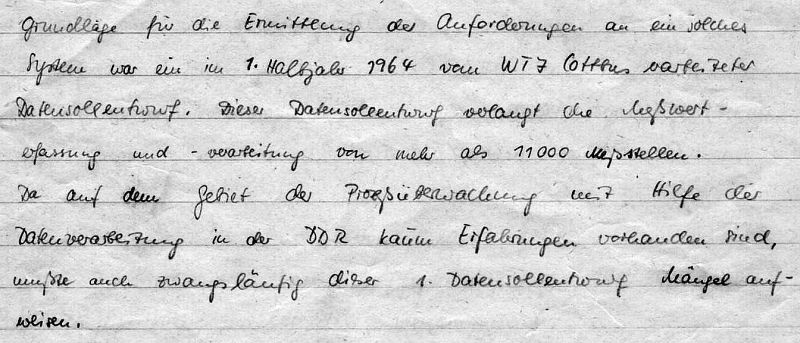 Grundlage für die Ermittlung der Anforderungen an ein solches
System war ein im 1. Halbjahr 1964 vom WTI Cottbus erarbeiteter
Datensollentwurf. Dieser Datensollentwurf verlangt die Meßwert-
erfassung und -verarbeitung von mehr als 11000 Meßstellen.
Da auf dem Gebiet der Prozeßüberwachung mit Hilfe der
Datenverarbeitung in der DDR kaum Erfahrungen vorhanden sind,
mußte auch zwangsläufig dieser 1. Datensollentwurf Mängel auf-
weisen.